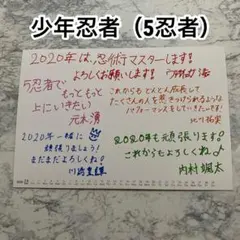 少年忍者（5忍者）
2020年は、忍術マスターします！
よろしくお願いします！
5忍者で
もっともっと
上にいきたい
元木湧
これからもどんどん成長して
たくさんの人を惹きつけられるような
パフォーマンスをしていきたいです！
2020年一緒に
頑張りましょう！
まだまだよろしくね！
2020年も頑張ります！
これからもよろしくね♪
内村颯太